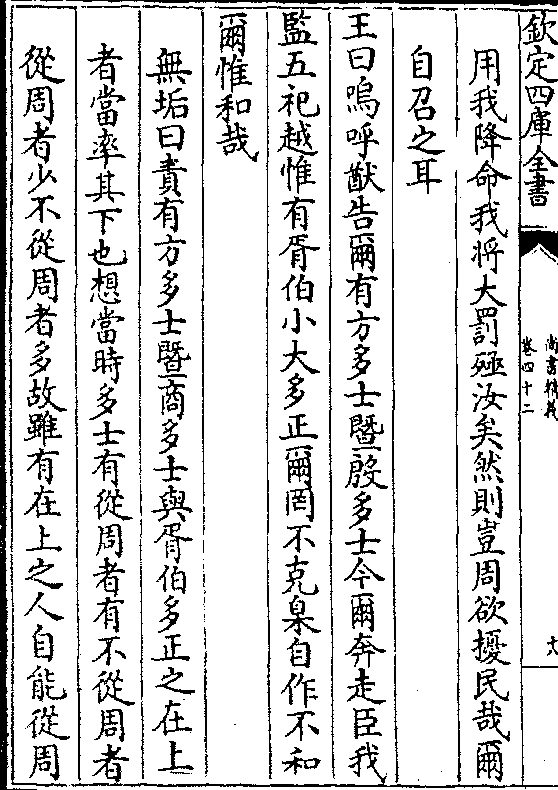 欽定四庫全書
尚書精義
卷四十二
用我降命我將大罰殛汝矣然則豈周欲擾民哉爾
自召之耳
王曰嗚呼猷告爾有方多士暨殷多士今爾奔走臣我
監五祀越惟有胥伯小大多正爾罔不克臬自作不和
爾惟和哉
無垢曰責有方多士暨商多士與胥伯多正之在上
者當率其下也想當時多士有從周者有不從周者
從周者少不從周者多故雖有在上之人自能從周